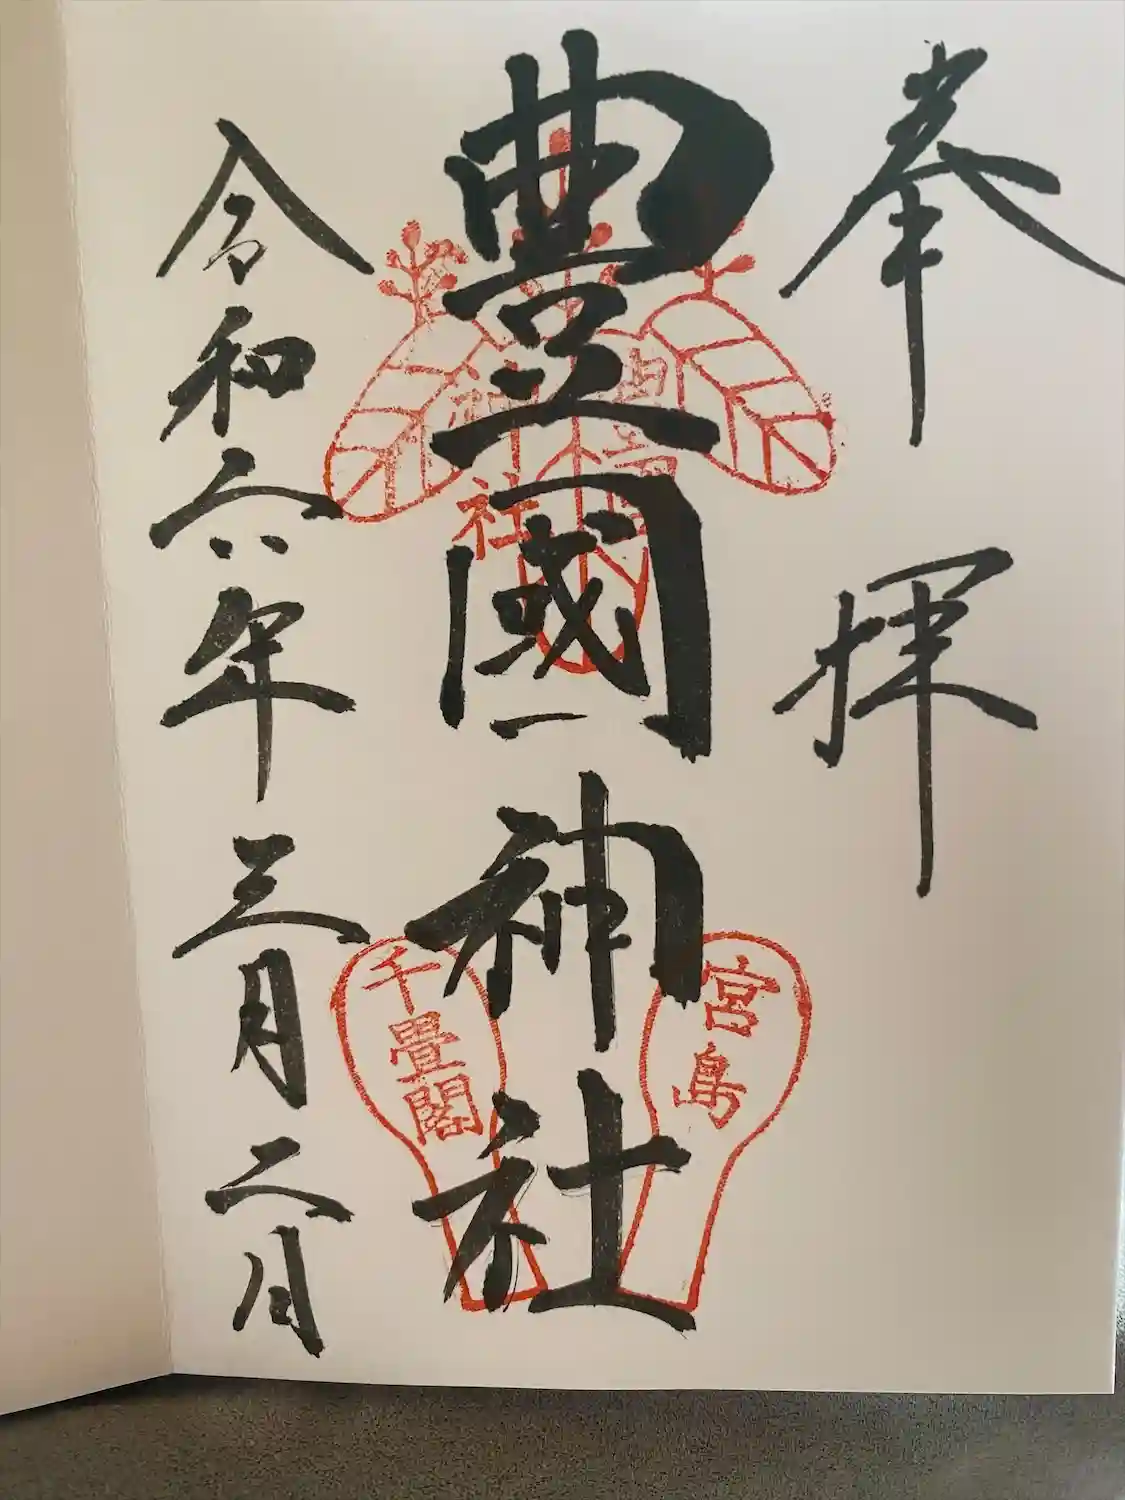 奉拝
豊國神社
豊國
神社
宮島
千畳閣
令和六年三月二日